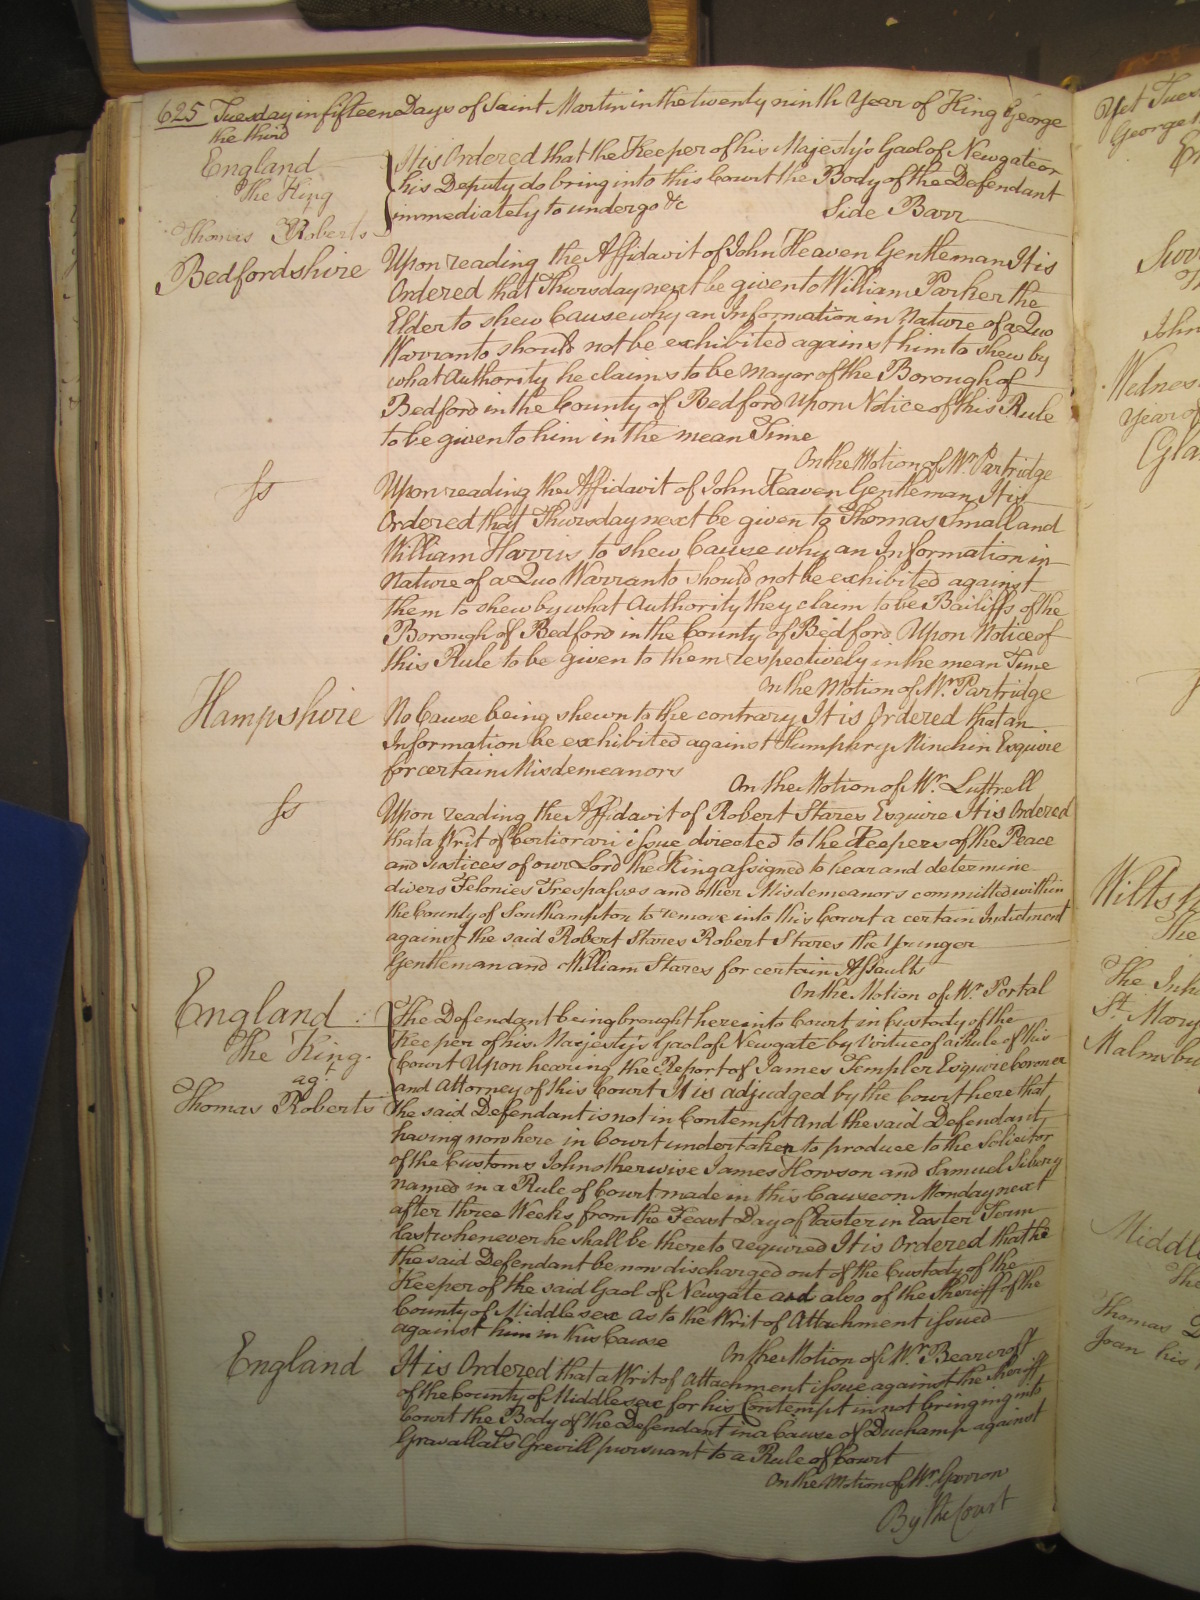 625 Tuesday in fifteen Days of Saint Martin in the twenty ninth Year of King George
the third
England
The King
Thomas Roberts
It is Ordered that the Keeper of his Majesty's Gaol of Newgate or
his Deputy do bring into this Court the Body of the Defendant
immediately to undergo &c
Side Barr
Bedfordshire
Upon reading the Affidavit of John Heaven Gentleman It is
Ordered that Thursday next be given to William Parker the
Elder to shew Cause why an Information in Nature of a Quo
Warranto should not be exhibited against him to shew by
what Authority he claims to be Mayor of the Borough of
Bedford in the County of Bedford Upon Notice of this Rule
to be given to him in the mean Time
On the Motion of Mr. Partridge
ss
Upon reading the Affidavit of John Heaven Gentleman It is
Ordered that Thursday next be given to Thomas Small and
William Harris to shew Cause why an Information in
Nature of a Quo Warranto should not be exhibited against
them to shew by what Authority they claim to be Bailiffs of the
Borough of Bedford in the County of Bedford Upon Notice of
this Rule to be given to them respectively in the mean Time
On the Motion of Mr. Partridge
Hampshire
No Cause being shewn to the contrary It is Ordered that an
Information be exhibited against Humphry Minchin Esquire
for certain Misdemeanors
On the Motion of Mr. Luttrell
ss
Upon reading the Affidavit of Robert Stares Esquire It is Ordered
that a Writ of Certiorari issue directed to the Keepers of the Peace
and Justices of our Lord the King assigned to hear and determine
divers Felonies Trespasses and other Misdemeanors committed within
the County of Southampton to remove into this Court a certain Indictment
against the said Robert Stares Robert Stares the Younger
Gentleman and William Stares for certain Assaults
On the Motion of Mr. Portal
England
The King
agt.
Thomas Roberts
The Defendant being brought here into Court in Custody of the
Keeper of his Majesty's Gaol of Newgate by virtue of a Rule of this
Court Upon hearing the Report of James Templer Esquire Coroner
and Attorney of this Court It is adjudged by the Court here that
the said Defendant is not in Contempt And the said Defendant
having now here in Court undertaken to produce to the Solicitor
of the Customs John otherwise James Howson and Samuel Sibery
named in a Rule of Court made in this Cause on Monday next
after three Weeks from the Feast Day of Easter in Easter Term
last whenever he shall be thereto required It is Ordered that he
the said Defendant be now discharged out of the Custody of the
Keeper of the said Gaol of Newgate and also of the Sheriff of the
County of Middlesex as to the Writ of Attachment issued
against him in this Cause
On the Motion of Mr. Bearcroft
England
It is Ordered that a Writ of Attachment issue against the Sheriff
of the County of Middlesex for his Contempt in not bringing into
Court the Body of the Defendant in a Cause of Duchamp against
Gravallats Grevill pursuant to a Rule of Court
On the Motion of Mr. Garrow
By the Court
Yet Tues
George
Surr
John
Wednes
Year of
Gla
Wilts
The
The Inh
St. Mary
Malmsbu
Middle
The
Thomas
Joan his